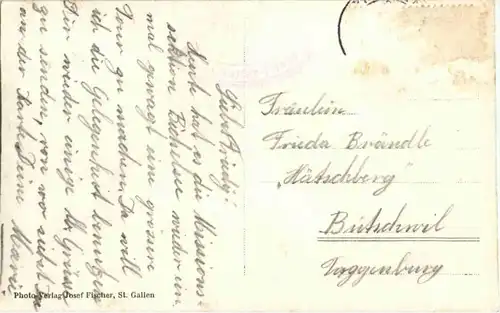 Liebe Friedy!
Heute hat es die Missions-
sektion Bichelsee wieder ein-
mal gewagt eine grössere
Tour zu machen. Da will
ich die Gelegenheit benutzen
Dir wieder einige hl. Grüsse
zu senden, von wo siehst Du
an der Karte. Deine Marie
Fräulein
Frieda Brändle
"Hätschberg"
Bütschwil
Toggenburg
Photo-Verlag Josef Fischer, St. Gallen